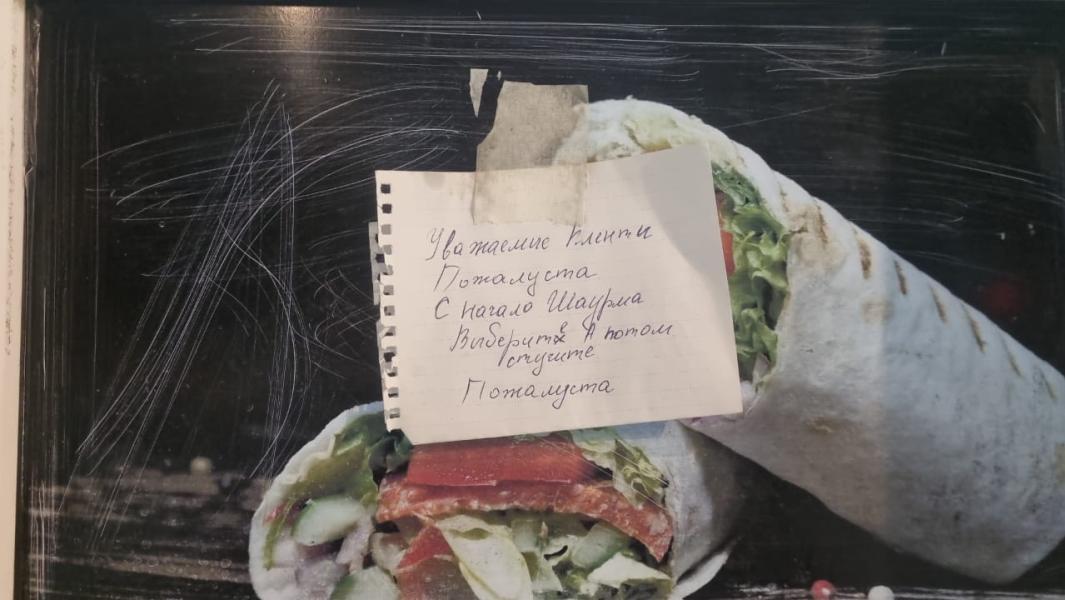 Уважаемие Кленти
Пожалуста
С начало Шаурма
Выберите А потом
стучите
Пожалуста